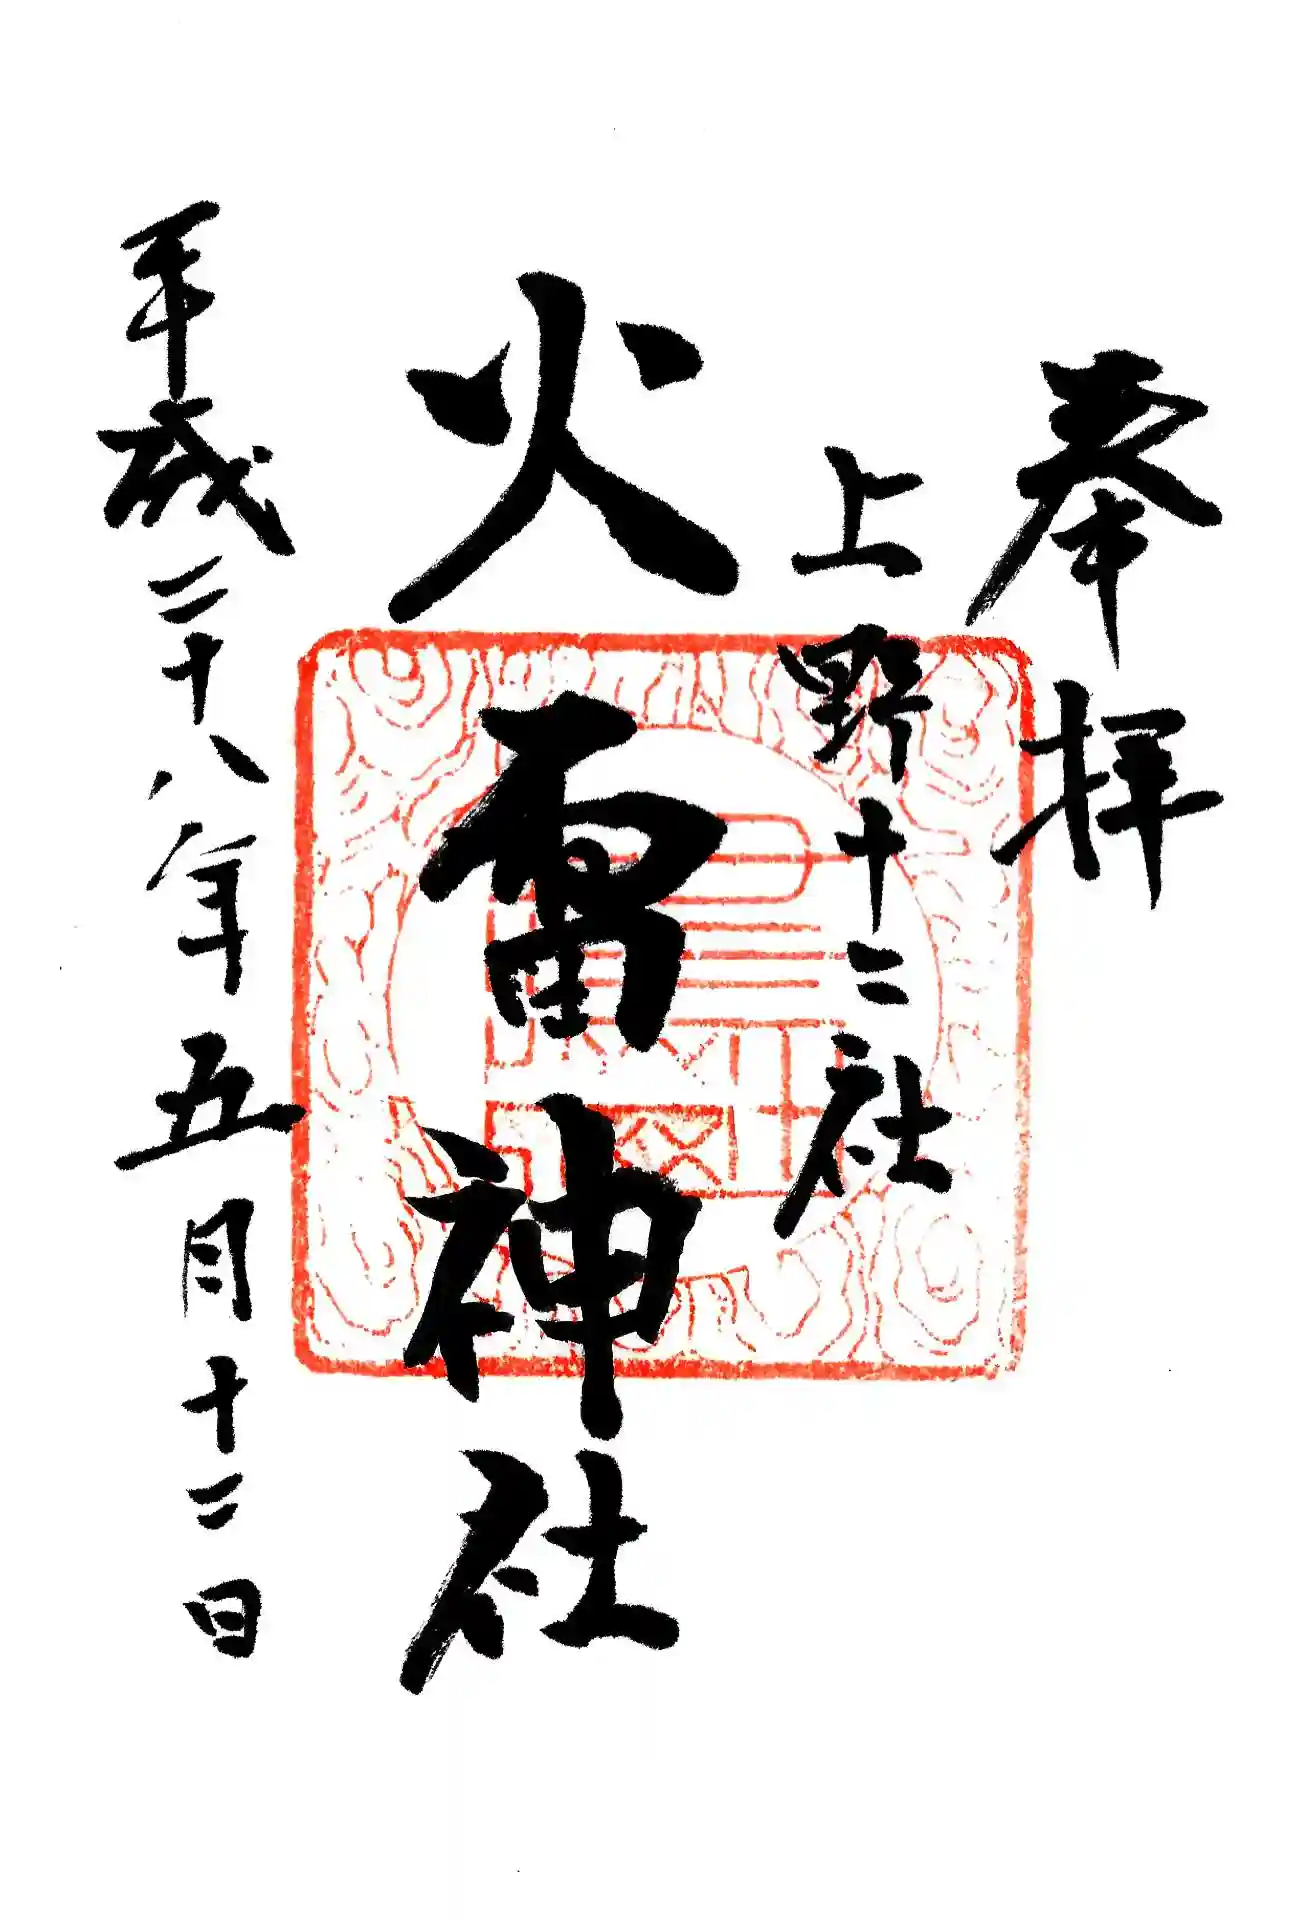 奉拝
上野十二社
火雷神社
平成二十八年五月十二日